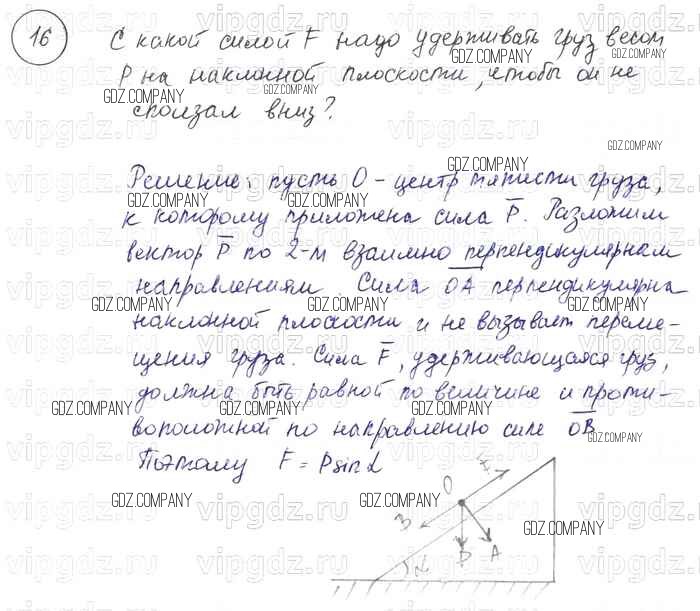 16 С какой силой F надо удерживать груз весом
P на наклонной плоскости, чтобы он не
сползал вниз?
Решение: пусть O - центр тяжести груза,
к которому приложена сила P̅. Разложим
вектор P̅ по 2-м взаимно перпендикулярным
направлениям. Сила O̅A̅ перпендикулярна
наклонной плоскости и не вызывает переме-
щения груза. Сила F̅, удерживающая груз,
должна быть равной по величине и проти-
воположной по направлению силе O̅B̅
Поэтому F = P sin α
F
O
B
P A
α